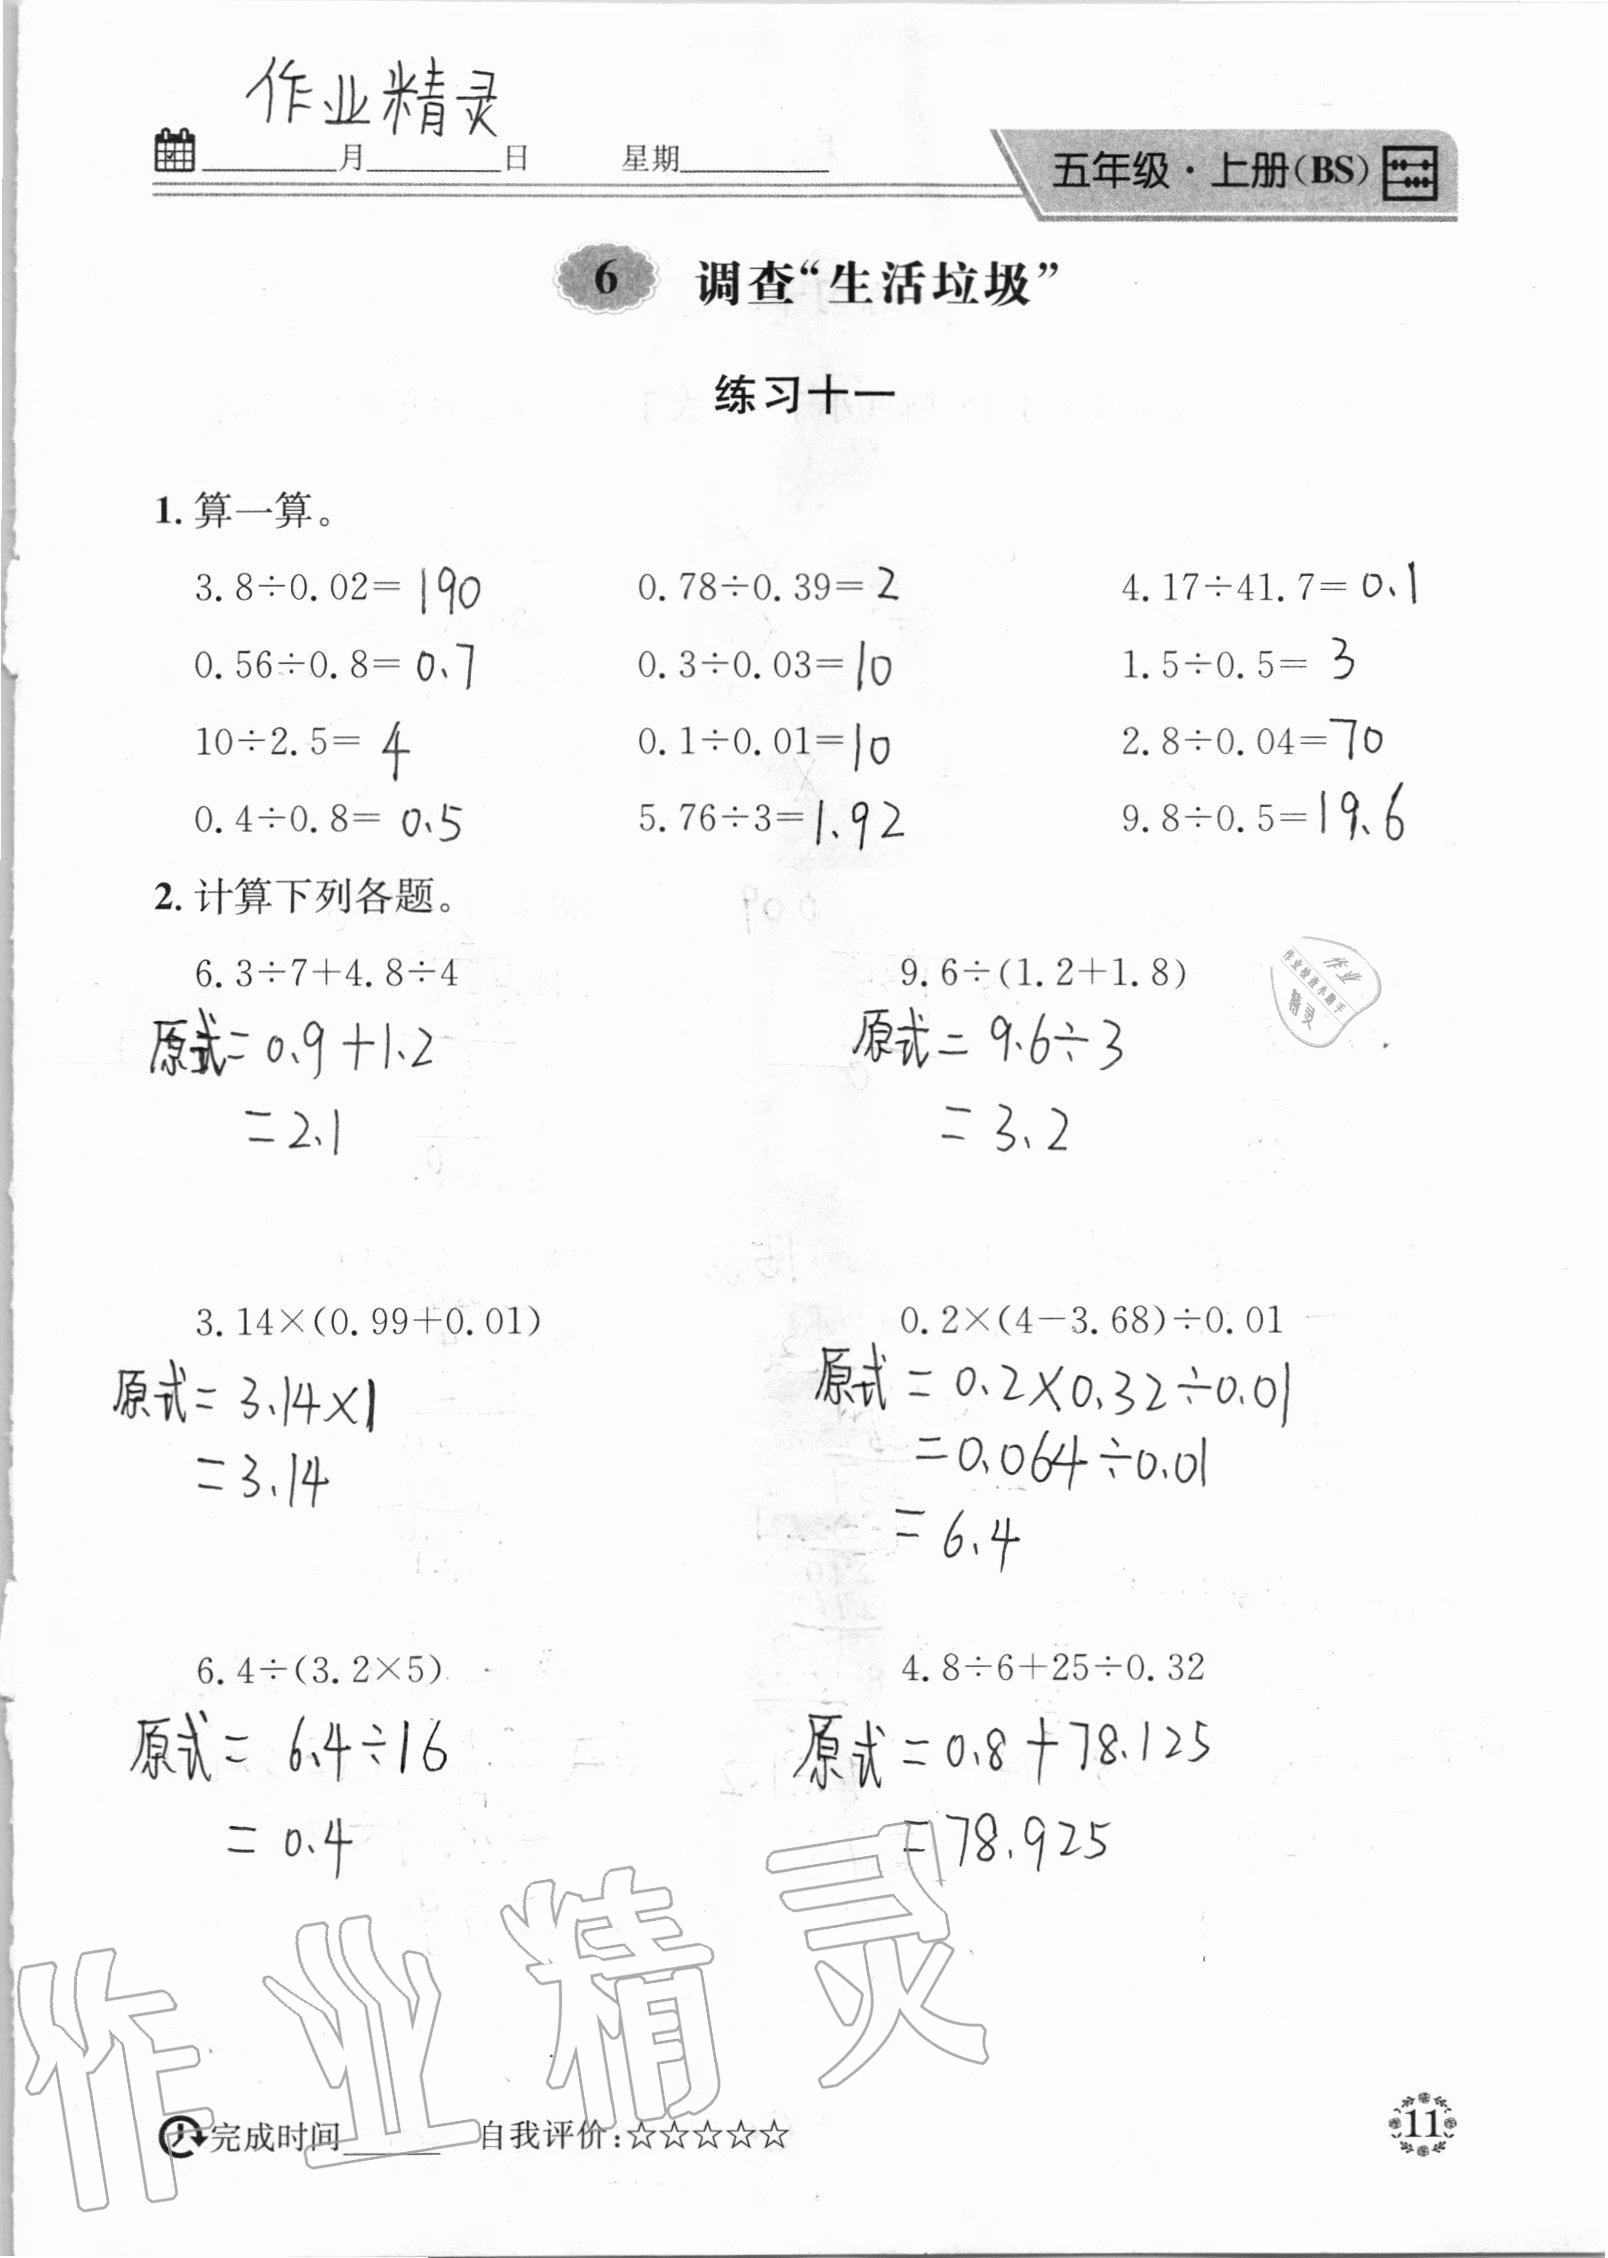 作业精灵
月 日 星期
五年级·上册(BS)
6 调查“生活垃圾”
练习十一
1. 算一算。
3.8÷0.02= 190 0.78÷0.39= 2 4.17÷41.7= 0.1
0.56÷0.8= 0.7 0.3÷0.03= 10 1.5÷0.5= 3
10÷2.5= 4 0.1÷0.01= 10 2.8÷0.04= 70
0.4÷0.8= 0.5 5.76÷3= 1.92 9.8÷0.5= 19.6
2. 计算下列各题。
6.3÷7+4.8÷4 9.6÷(1.2+1.8)
原式= 0.9+1.2 原式= 9.6÷3
=2.1 =3.2
作业
作业检查小助手
精灵
3.14×(0.99+0.01) 0.2×(4-3.68)÷0.01
原式= 3.14×1 原式= 0.2×0.32÷0.01
=3.14 =0.064÷0.01
=6.4
6.4÷(3.2×5) 4.8÷6+25÷0.32
原式= 6.4÷16 原式= 0.8+78.125
=0.4 =78.925
作业精灵
完成时间 自我评价:☆☆☆☆☆
11